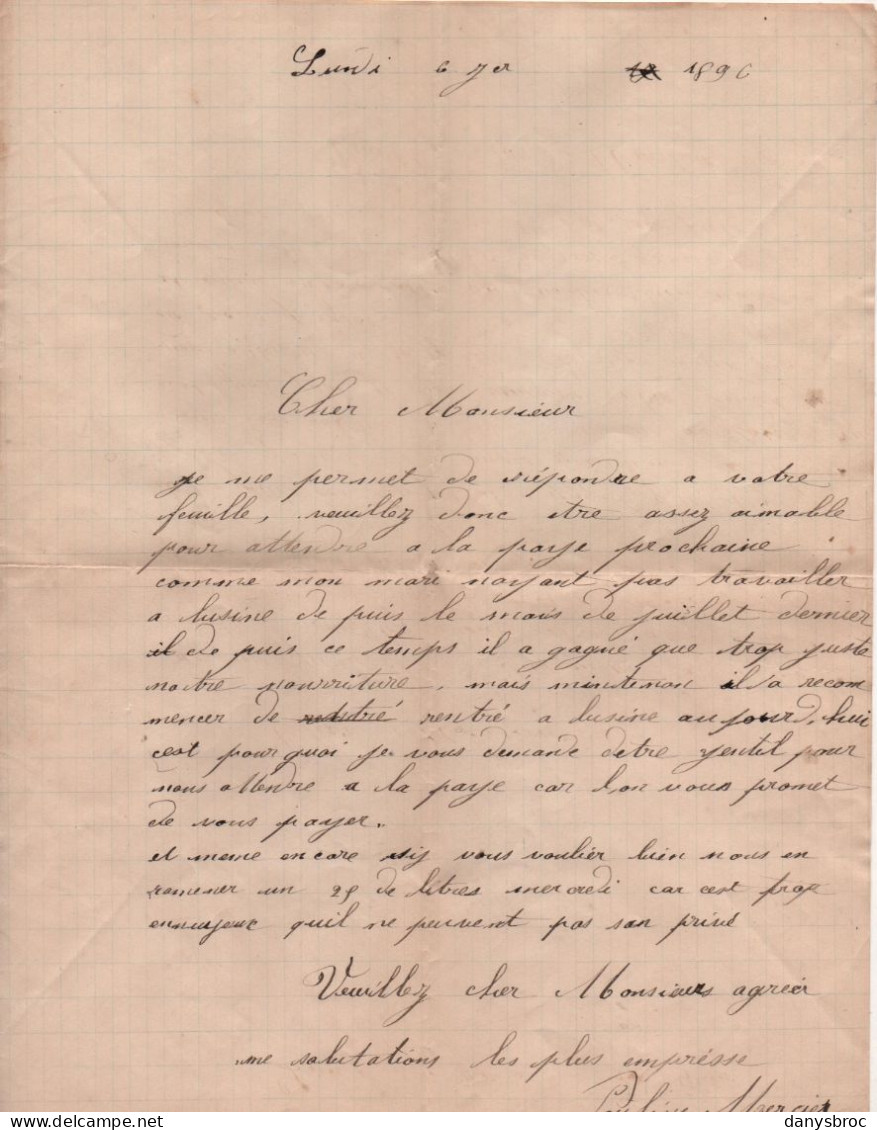 Lundi 6 yer 1896
Cher Monsieur
je me permet de répondre a votre
feuille, veuillez donc etre assez aimable
pour attendre a la paye prochaine
comme mon mari nayant pas travailler
a lusine de puis le mois de juillet dernier
il de puis ce temps il a gagné que trop juste
notre nourriture, mais mintenon il a recom
mencer de rentré a lusine aujourd,hui
cest pourquoi je vous demande detre gentil pour
nous attendre a la paye car lon vous promet
de vous payer.
et meme encore siy vous voulier bien nous en
ramener un 25 de litres mercredi car cest trop
ennuyeux quil ne peuvent pas son privé
Veuillez cher Monsieurs agréer
me salutations les plus empresse
Mercier
danysbroc